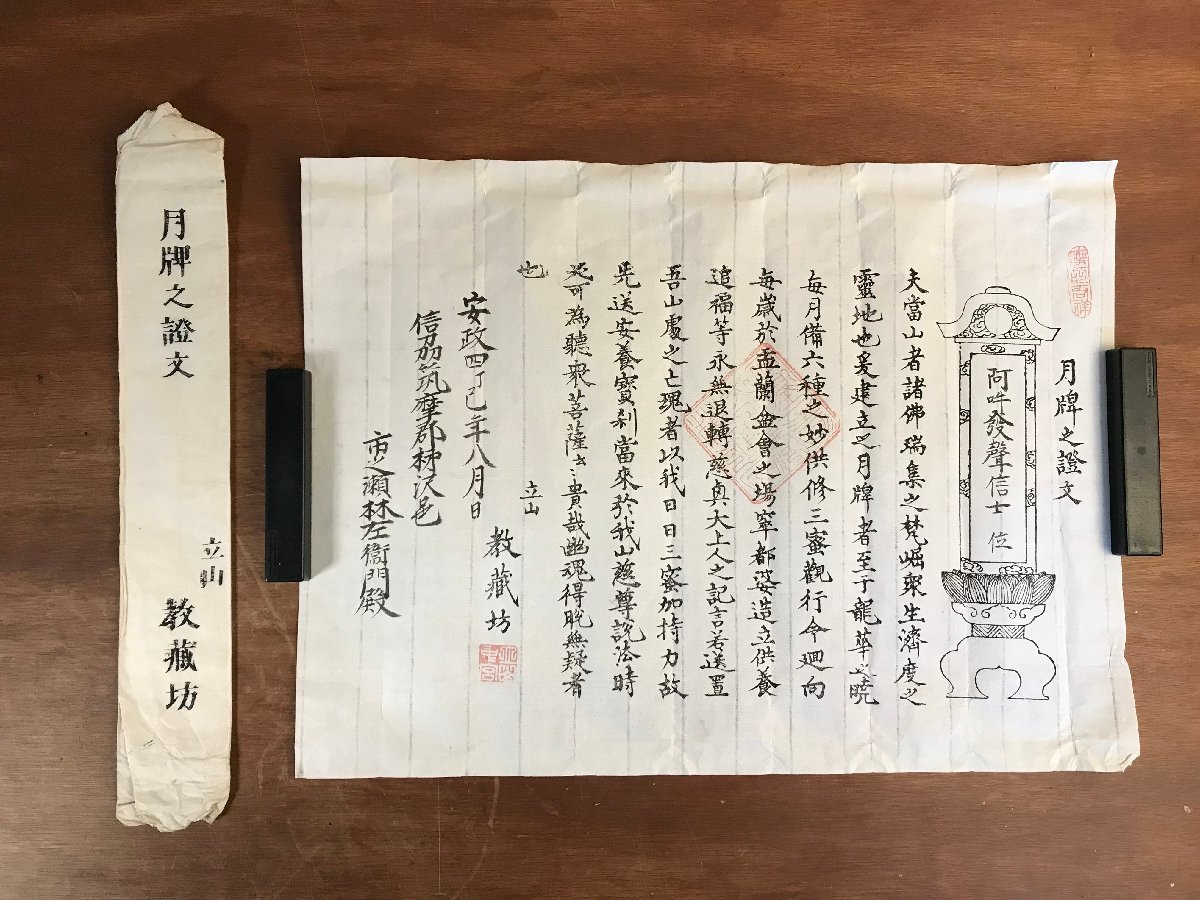 月牌之證文
阿吽發聲信士 位
夫當山者諸佛瑞集之梵崛衆生濟度之
靈地也爰建立之月牌者至于龍華之暁
毎月備六種之妙供修三蜜觀行令廻向
毎歳於盂蘭盆會之場窣都婆造立供養
追福等永無退轉慈眞大上人之記言若送置
吾山處之亡瑰者以我日日三蜜加持力故
先送安養寳刹當來於我山慈尊説法時
必可為聽衆菩薩云々貴哉幽魂得脱無疑者
也
立山
教藏坊
安政四丁巳年八月日
信刕筑摩郡林沢邑
市之瀬林左衞門殿
月牌之證文
立山
教藏坊